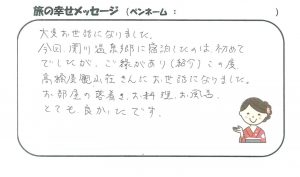 旅の幸せメッセージ (ペンネーム : )
大変お世話になりました。
今回、関川温泉郷に宿泊したのは初めて
でしたが、ご縁があり(紹介)この度
高瀬屋観山荘さんにお世話になりました。
お部屋の落着き、お料理、お風呂
とても良かったです。